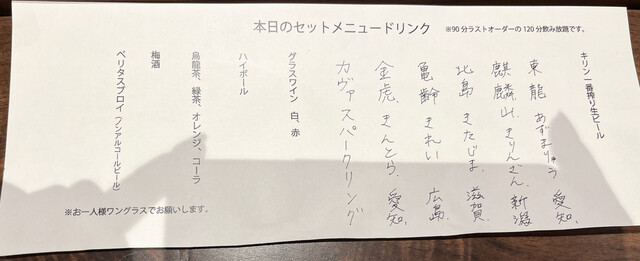 本日のセットメニュードリンク
※90分ラストオーダーの120分飲み放題です。
キリン一番搾り生ビール
東龍 あずまりゅう 愛知、
麒麟山、きりんざん、新潟
北島 きたじま、滋賀、
亀齢 きれい 広島、
金虎、きんとら、愛知、
カヴァスパークリング
グラスワイン 白、赤
ハイボール
烏龍茶、緑茶、オレンジ、コーラ
梅酒
ベリタスブロイ（ノンアルコールビール）
※お一人様ワングラスでお願いします。